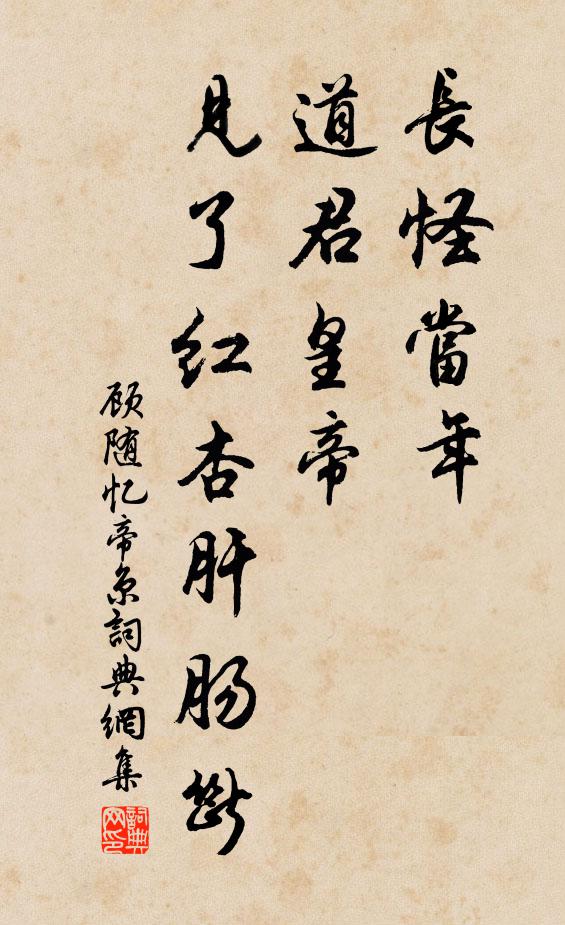 長怪當年
道君皇帝
見了红杏肝肠斷
顾随忆帝京詞典網集
詞典网印